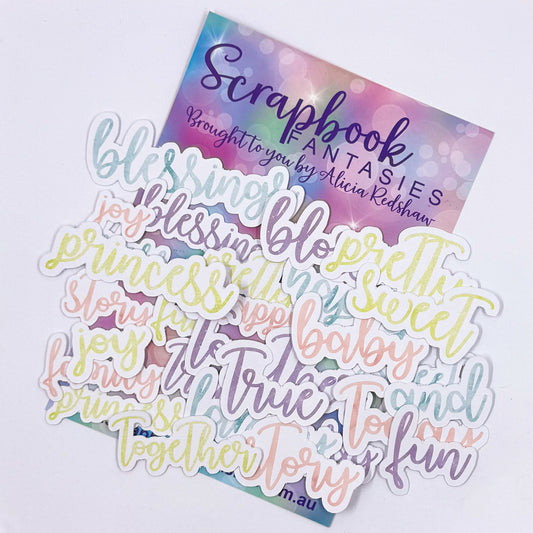 Scrapbook
FANTASIES
Brought to you by Alicia Redshaw
blessings
joy
blessing
blo
pretty
princess
sweet
story
fun
baby
joy
family
True
and
princess
Today
Together
story
fun
m.au